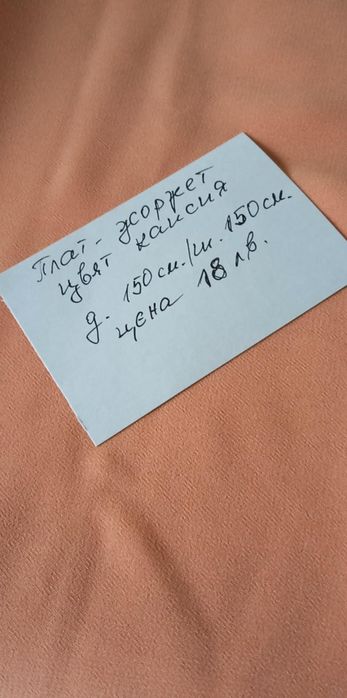 Плат - жоржет
цвят кайсия
д. 150 см. / ш. 150 см.
цена 18 лв.